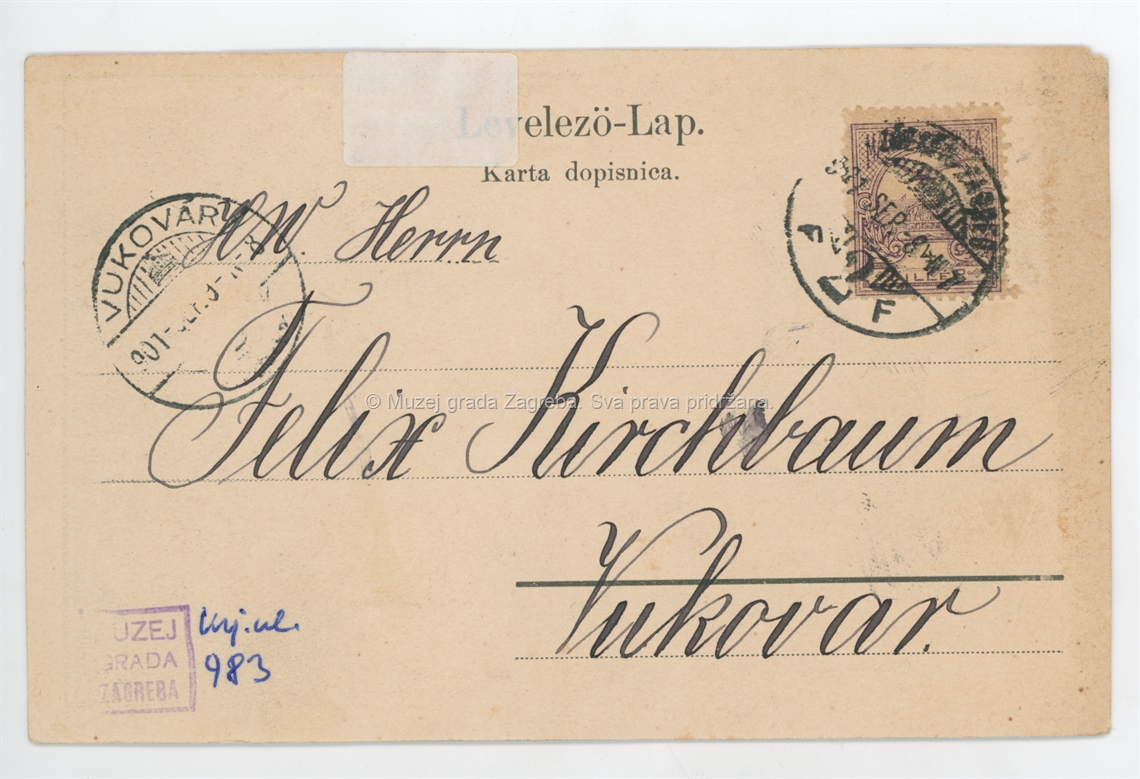 Levelezö-Lap.
Karta dopisnica.
VUKOVÁR
901
901 SEP.
F
F
H.W. Herrn
Felix Kirchbaum
© Muzej grada Zagreba. Sva prava pridržana.
Vukovar.
UZEJ
GRADA
ZAGREBA
983